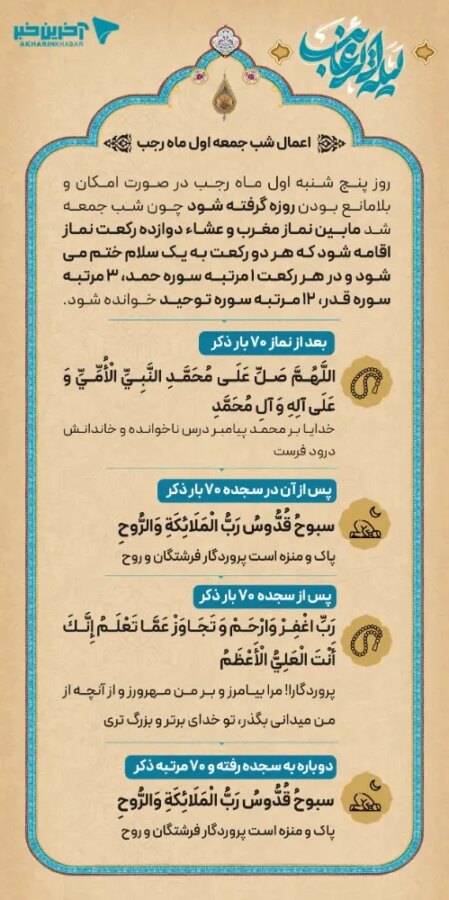 آخرین خبر
AKHARINKHABAR
لیلة الرغائب
اعمال شب جمعه اول ماه رجب
روز پنج شنبه اول ماه رجب در صورت امکان و
بلامانع بودن روزه گرفته شود چون شب جمعه
شد مابین نماز مغرب و عشاء دوازده رکعت نماز
اقامه شود که هر دو رکعت به یک سلام ختم می
شود و در هر رکعت ۱ مرتبه سوره حمد، ۳ مرتبه
سوره قدر، ۱۲ مرتبه سوره توحید خوانده شود.
بعد از نماز ۷۰ بار ذکر
اللَّهُمَّ صَلِّ عَلَى مُحَمَّدِ النَّبِيِّ الْأُمِّيِّ وَ
عَلَى آلِهِ وَ آلِ مُحَمَّدٍ
خدایا بر محمد پیامبر درس ناخوانده و خاندانش
درود فرست
پس از آن در سجده ۷۰ بار ذکر
سبوحُ قُدُّوسُ رَبُّ الْمَلَائِكَةِ وَالرُّوحِ
پاک و منزه است پروردگار فرشتگان و روح
پس از سجده ۷۰ بار ذکر
رَبِّ اغْفِرْ وَارْحَمْ وَ تَجَاوَزْ عَمَّا تَعْلَمُ إِنَّكَ
أَنْتَ الْعَلِيُّ الْأَعْظَمُ
پروردگارا! مرا بیامرز و بر من مهرورز و از آنچه از
من میدانی بگذر، تو خدای برتر و بزرگ تری
دوباره به سجده رفته و ۷۰ مرتبه ذکر
سبوحُ قُدُّوسُ رَبُّ الْمَلَائِكَةِ وَالرُّوحِ
پاک و منزه است پروردگار فرشتگان و روح